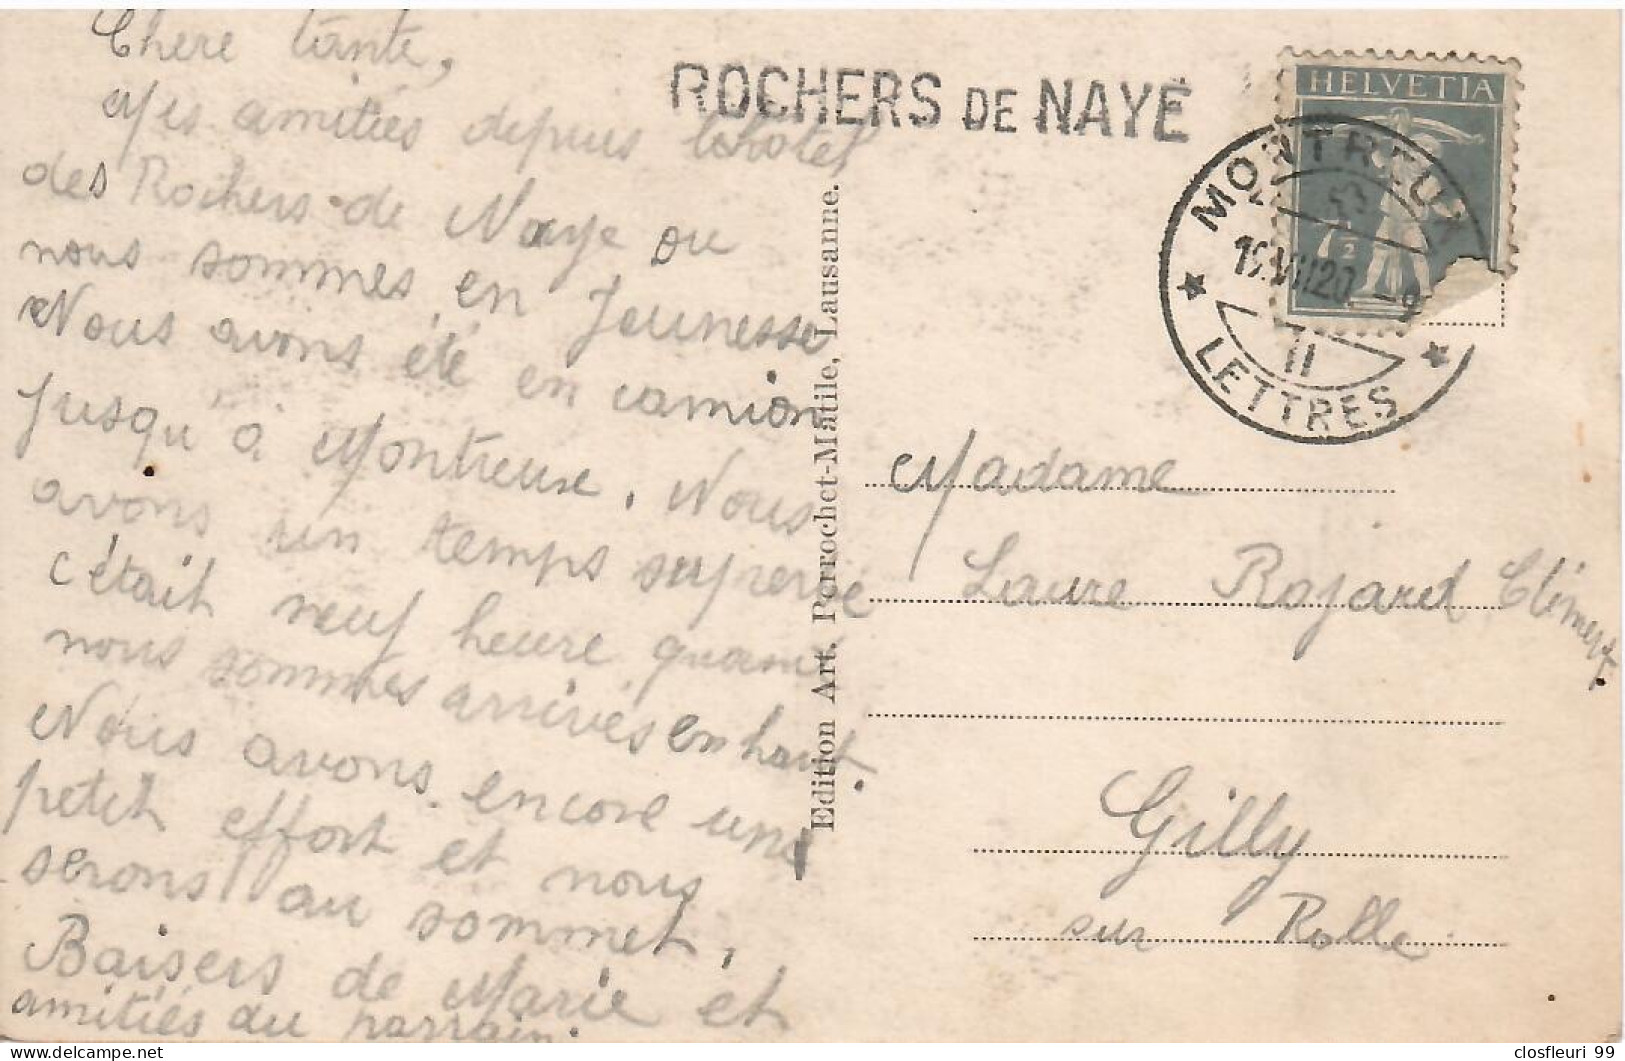 Chere tante,
Mes amitiés depuis lohotel
des Rochers de Naye ou
nous sommes en Jeunesse
Nous avons été en camion
jusqu'à Montreuse. Nous
avons un temps superbe
c'était neuf heure quant
nous sommes arrivés en haut.
Nous avons encore une
petit effort et nous
serons au sommet.
Baisers de Marie et
amitiés du parrain.
Edition Art. Perrochet-Matile, Lausanne.
ROCHERS DE NAYE
HELVETIA
7 1/2
MONTREUX
19.VII 20 - 9
II
LETTRES
Madame
Laure Rojard Clément.
Gilly
sur Rolle
closfleuri 99